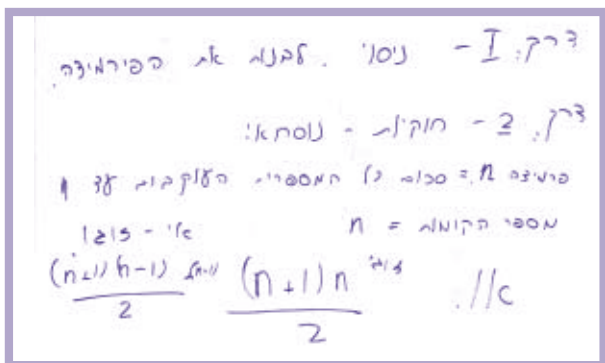 דרך I - ניסוי. לבנות את הפירמידה.
דרך 2 - חוקיות - נוסחא:
פרמידה n = סכום כל המספרים העוקבים עד n
מספר הקומות = n אי - זוגי
(n+1)(n-1)/2 (n+1)n/2 זוגי